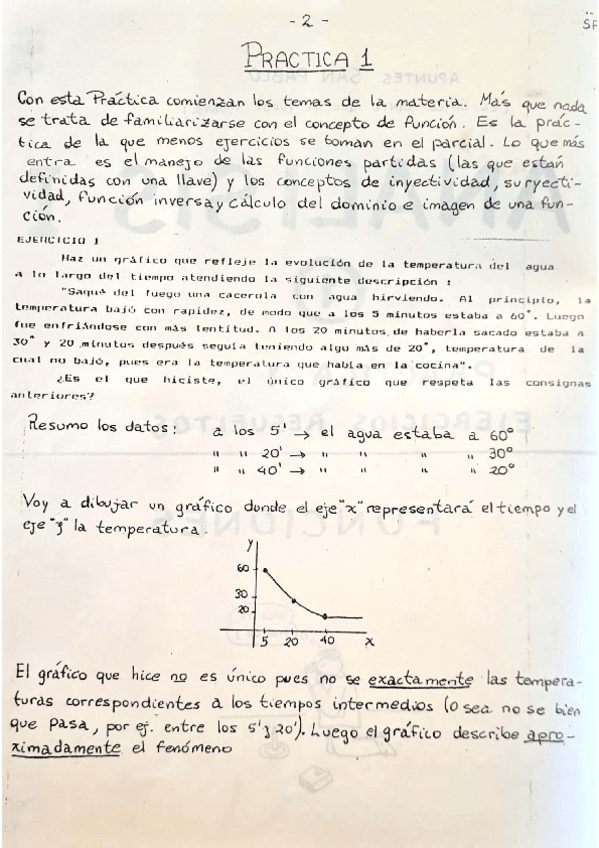 - 2 -
PRACTICA 1
Con esta Práctica comienzan los temas de la materia. Más que nada
se trata de familiarizarse con el concepto de función. Es la prác-
tica de la que menos ejercicios se toman en el parcial. Lo que más
entra es el manejo de las funciones partidas (las que están
definidas con una llave) y los conceptos de inyectividad, suryecti-
vidad, función inversa y cálculo del dominio e imagen de una fun-
ción.
EJERCICIO 1
Haz un gráfico que refleje la evolución de la temperatura del agua
a lo largo del tiempo atendiendo la siguiente descripción :
"Saqué del fuego una cacerola con agua hirviendo. Al principio, la
temperatura bajó con rapidez, de modo que a los 5 minutos estaba a 60°. Luego
fue enfriándose con más lentitud. A los 20 minutos de haberla sacado estaba a
30° y 20 minutos después seguía teniendo algo más de 20°, temperatura de la
cual no bajó, pues era la temperatura que había en la cocina".
¿Es el que hiciste, el único gráfico que respeta las consignas
anteriores?
Resumo los datos: a los 5' → el agua estaba a 60°
" " 20' → " " " " 30°
" " 40' → " " " " 20°
Voy a dibujar un gráfico donde el eje "x" representará el tiempo y el
eje "y" la temperatura.
y
60
30
20
5 20 40 x
El gráfico que hice no es único pues no se exactamente las tempera-
turas correspondientes a los tiempos intermedios (o sea no se bien
que pasa, por ej. entre los 5' y 20'). Luego el gráfico describe apro-
ximadamente el fenómeno